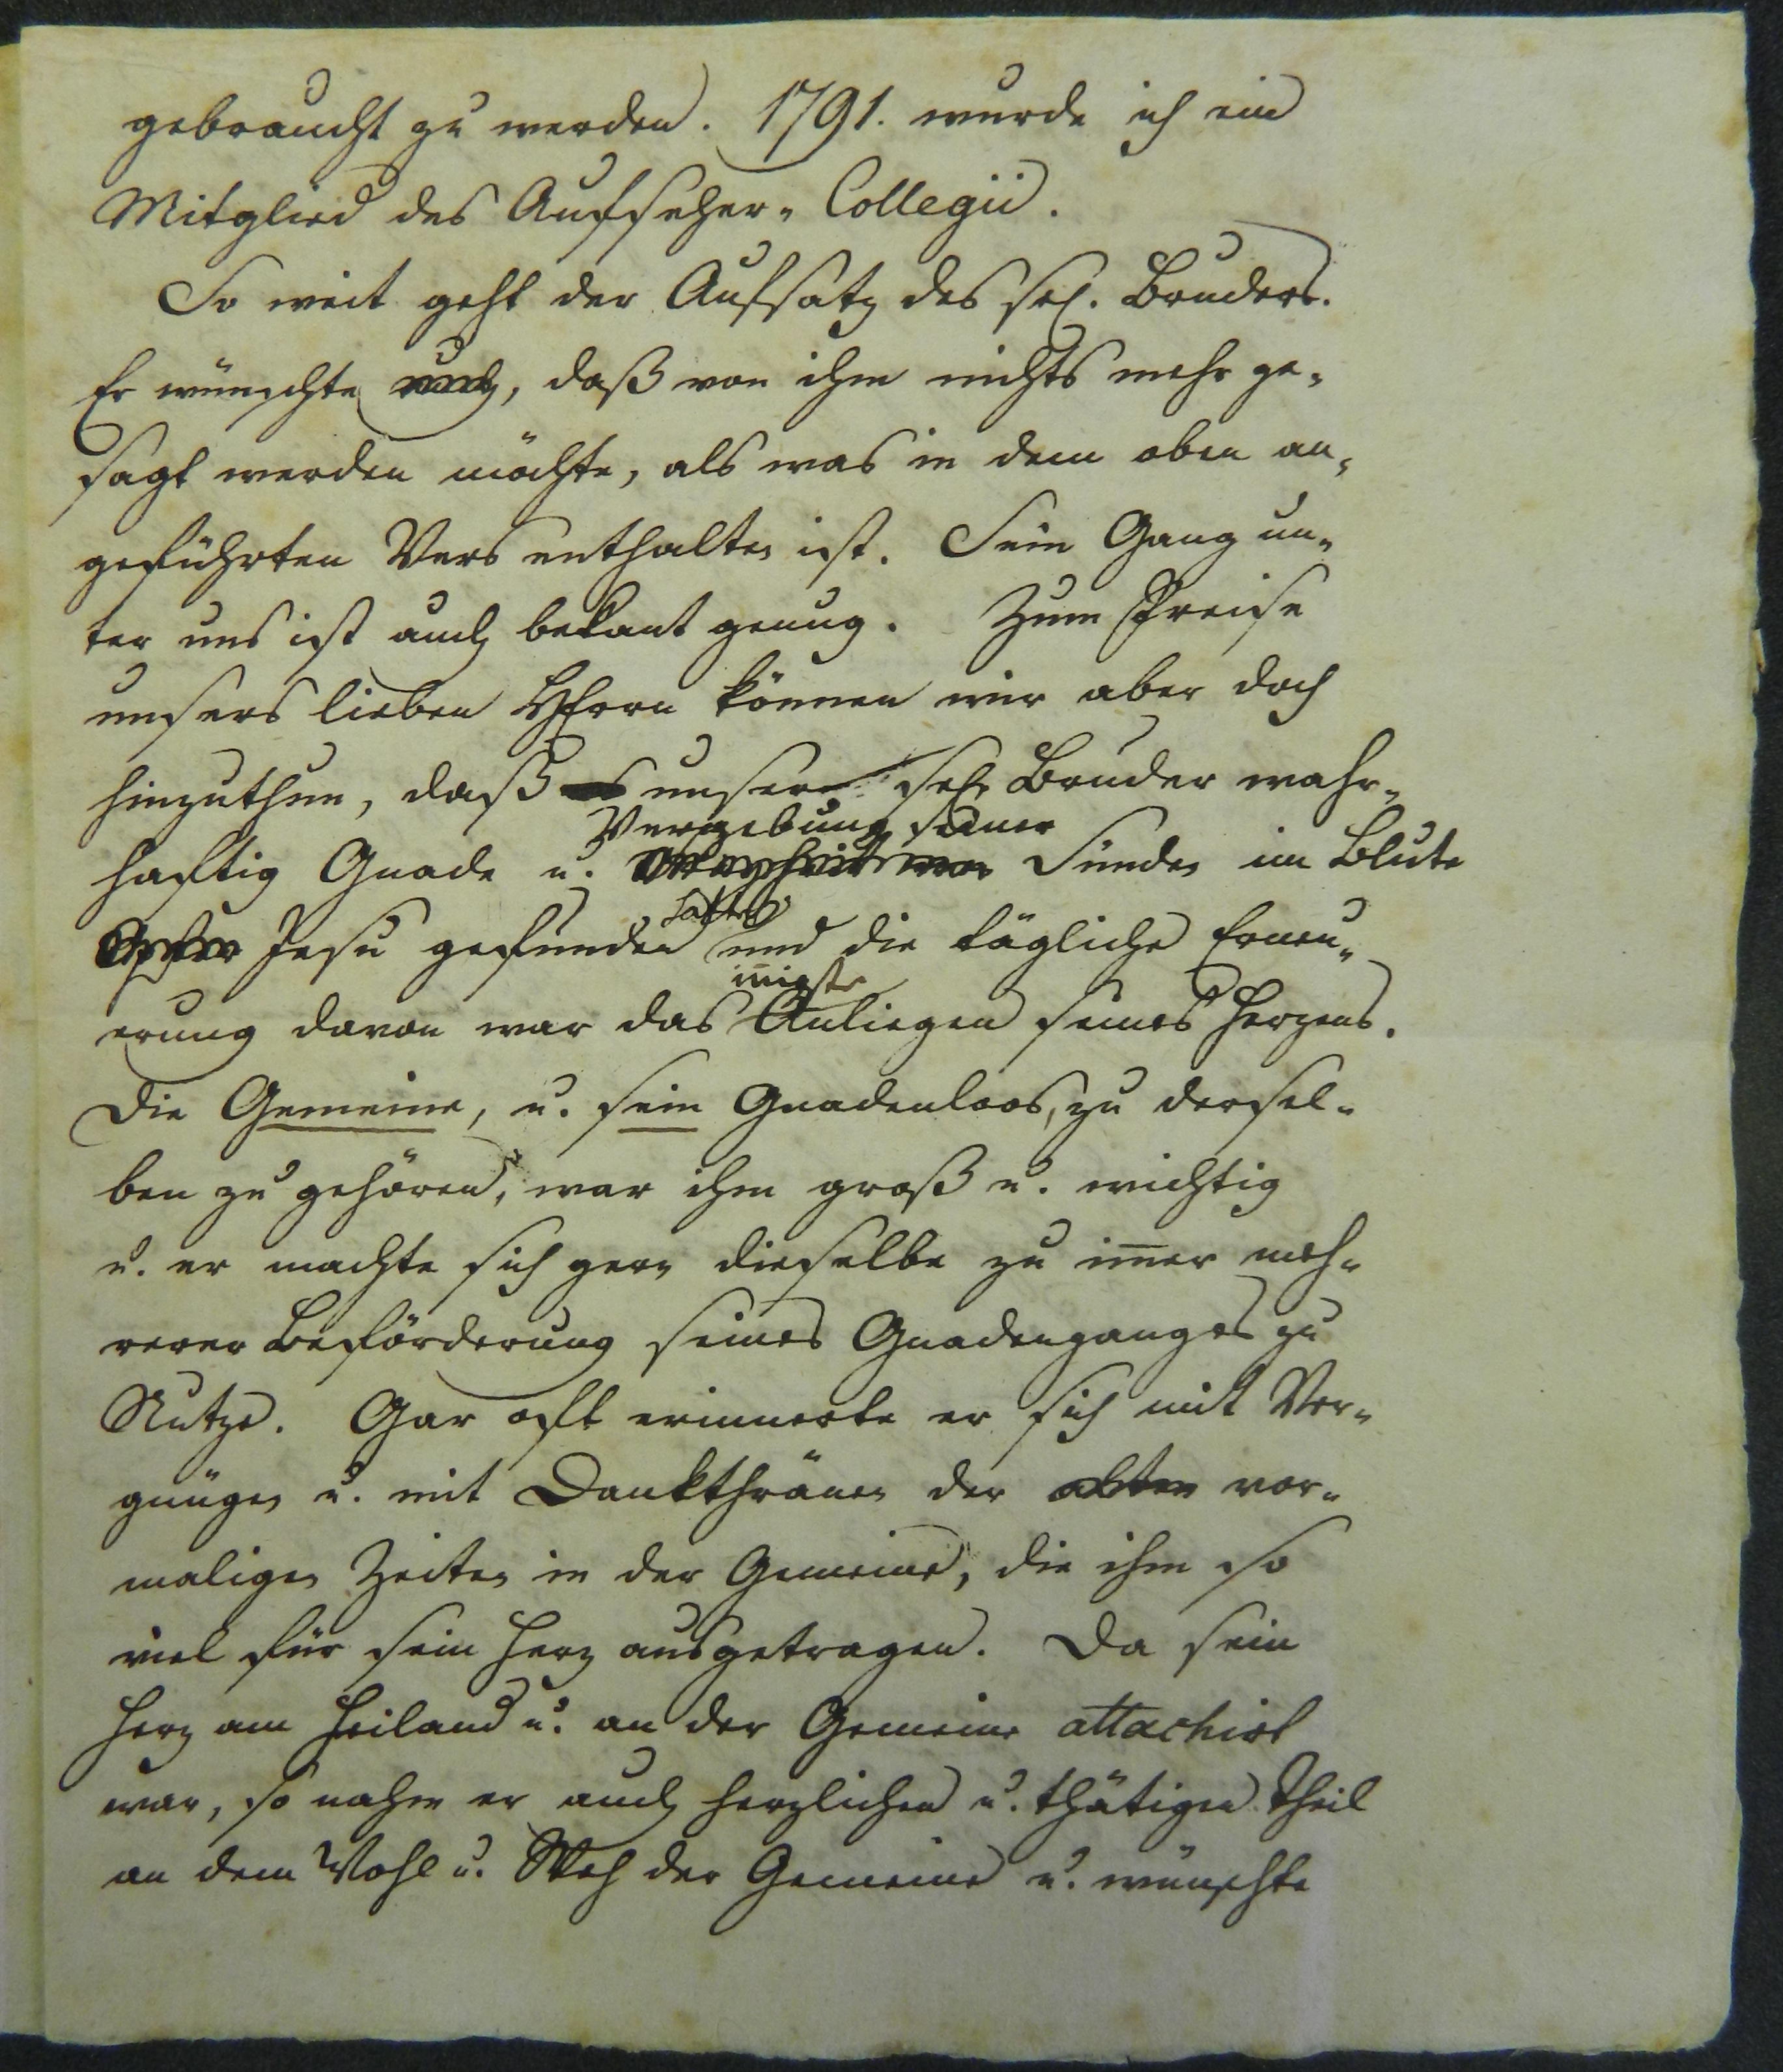 gebraucht zu werden. 1791. wurde ich ein
Mitglied des Aufseher-Collegii.
So weit geht der Aufsatz des sel. Bruders.
Er wünschte auch, daß von ihm nichts mehr ge-
sagt werden möchte, als was in dem oben an-
geführten Vers enthalten ist. Sein Gang un-
ter uns ist auch bekant genug. Zum Preise
unsers lieben HErrn können wir aber doch
hinzuthun, daß unser sel. Bruder wahr-
Vergebung seiner
haftig Gnade u. Sünden im Blute
hatte
Jesu gefunden und die tägliche Erneu-
innigste
erung davon war das Anliegen seines Herzens.
Die Gemeine, u. sein Gnadenloos, zu dersel-
ben zu gehören, war ihm groß u. wichtig
u. er machte sich gern dieselbe zu im̅er meh-
rerer Beförderung seines Gnadenganges zu
Nutze. Gar oft erinnerte er sich mit Ver-
gnügen u. mit Dankthränen der alten vor-
maligen Zeiten in der Gemeine, die ihm so
viel für sein Herz ausgetragen. Da sein
Herz am Heiland u. an der Gemeine attachirt
war, so nahm er auch herzlichen u. thätigen Theil
an dem Wohl u. Weh der Gemeine u. wünschte